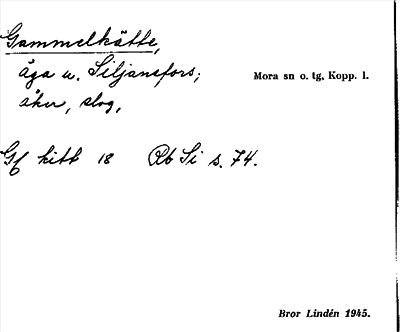 Gammelkätte,
äga u. Siljansfors;
Mora sn o. tg, Kopp. l.
åker, slog,
Gf kitt 18 Rb Si s. 74.
Bror Lindén 1945.